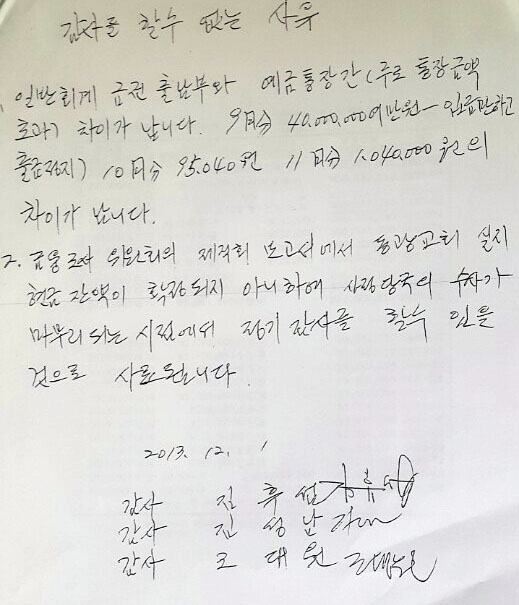 감사를 할수 없는 사유
1. 일반회계 금전 출납부와 예금통장간(주로 통장금액
초과) 차이가 납니다. 9月分 40,000,000여만원- 입금만하고
출금정지) 10月分 95,040원 11月分 1,040,000원의
차이가 납니다.
2. 교회 제직회 보고서에서 동광교회 실지
현금 잔액이 확정되지 아니하여 사정당국의 수사가
마무리 되는 시점에서 정기 감사를 할수 있을
것으로 사료됩니다.
2013. 12. 1
감사 김 후 섭
감사 김 성 남
감사 조 대 원